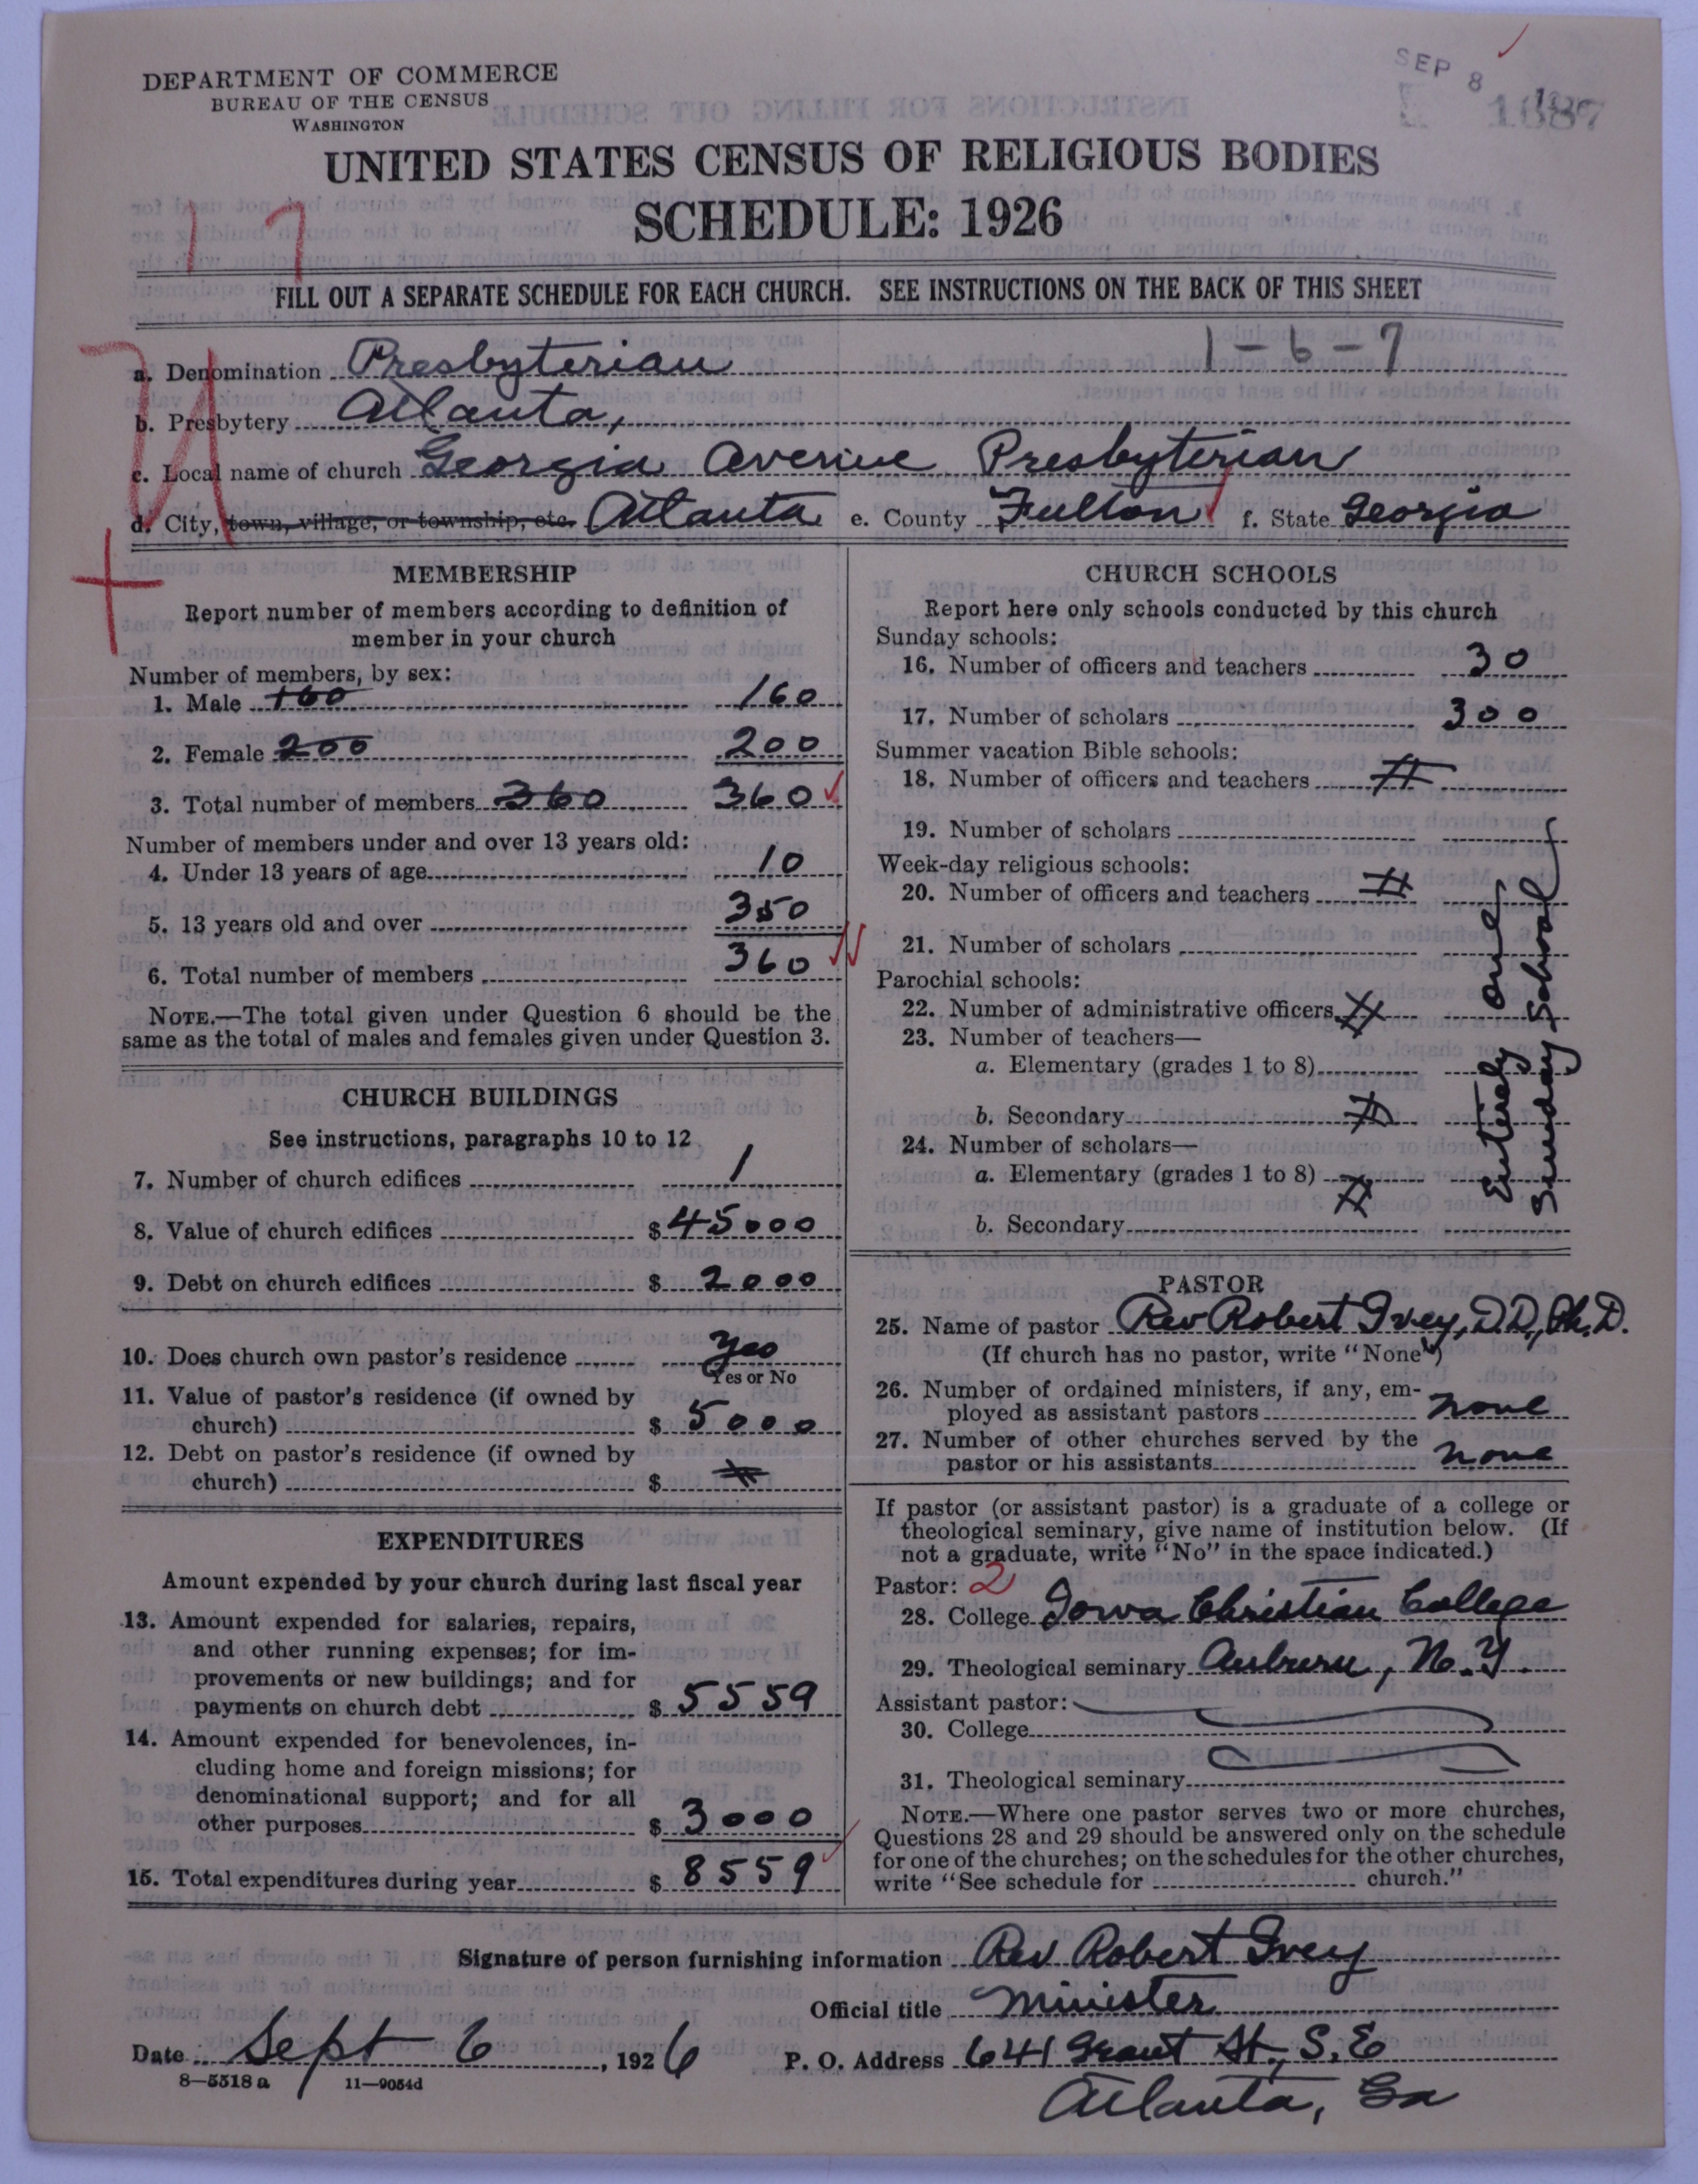 DEPARTMENT OF COMMERCE
BUREAU OF THE CENSUS
WASHINGTON
SEP 8
UNITED STATES CENSUS OF RELIGIOUS BODIES
SCHEDULE: 1926
17
FILL OUT A SEPARATE SCHEDULE FOR EACH CHURCH. SEE INSTRUCTIONS ON THE BACK OF THIS SHEET
1-6-7
a. Denomination Presbyterian
b. Presbytery Atlanta,
c. Local name of church Georgia Avenue Presbyterian
d. City, town, village, or township, etc. Atlanta e. County Fulton f. State Georgia
MEMBERSHIP
Report number of members according to definition of
member in your church
Number of members, by sex:
1. Male 160 160
2. Female 200 200
3. Total number of members 360 360
Number of members under and over 13 years old:
4. Under 13 years of age 10
5. 13 years old and over 350
6. Total number of members 360
NOTE.—The total given under Question 6 should be the
same as the total of males and females given under Question 3.
CHURCH BUILDINGS
See instructions, paragraphs 10 to 12
7. Number of church edifices 1
8. Value of church edifices $ 45000
9. Debt on church edifices $ 2000
10. Does church own pastor's residence yes
Yes or No
11. Value of pastor's residence (if owned by
church) $ 5000
12. Debt on pastor's residence (if owned by
church) $
EXPENDITURES
Amount expended by your church during last fiscal year
13. Amount expended for salaries, repairs,
and other running expenses; for im-
provements or new buildings; and for
payments on church debt $ 5559
14. Amount expended for benevolences, in-
cluding home and foreign missions; for
denominational support; and for all
other purposes $ 3000
15. Total expenditures during year $ 8559
CHURCH SCHOOLS
Report here only schools conducted by this church
Sunday schools:
16. Number of officers and teachers 30
17. Number of scholars 300
Summer vacation Bible schools:
18. Number of officers and teachers
19. Number of scholars
Week-day religious schools:
20. Number of officers and teachers
21. Number of scholars
Parochial schools:
22. Number of administrative officers
23. Number of teachers—
a. Elementary (grades 1 to 8)
b. Secondary
24. Number of scholars—
a. Elementary (grades 1 to 8)
b. Secondary
Entirely one
Sunday School
PASTOR
25. Name of pastor Rev Robert Ivey, D.D., Ph.D.
(If church has no pastor, write "None")
26. Number of ordained ministers, if any, em-
ployed as assistant pastors none
27. Number of other churches served by the
pastor or his assistants none
If pastor (or assistant pastor) is a graduate of a college or
theological seminary, give name of institution below. (If
not a graduate, write "No" in the space indicated.)
Pastor: 2
28. College Iowa Christian College
29. Theological seminary Auburn, N.Y.
Assistant pastor:
30. College
31. Theological seminary
NOTE.—Where one pastor serves two or more churches,
Questions 28 and 29 should be answered only on the schedule
for one of the churches; on the schedules for the other churches,
write "See schedule for church."
Signature of person furnishing information Rev Robert Ivey
Official title Minister
Date Sept 6, 1926 P. O. Address 641 Grant St., S.E
8—5518 a 11—9054d
Atlanta, Ga